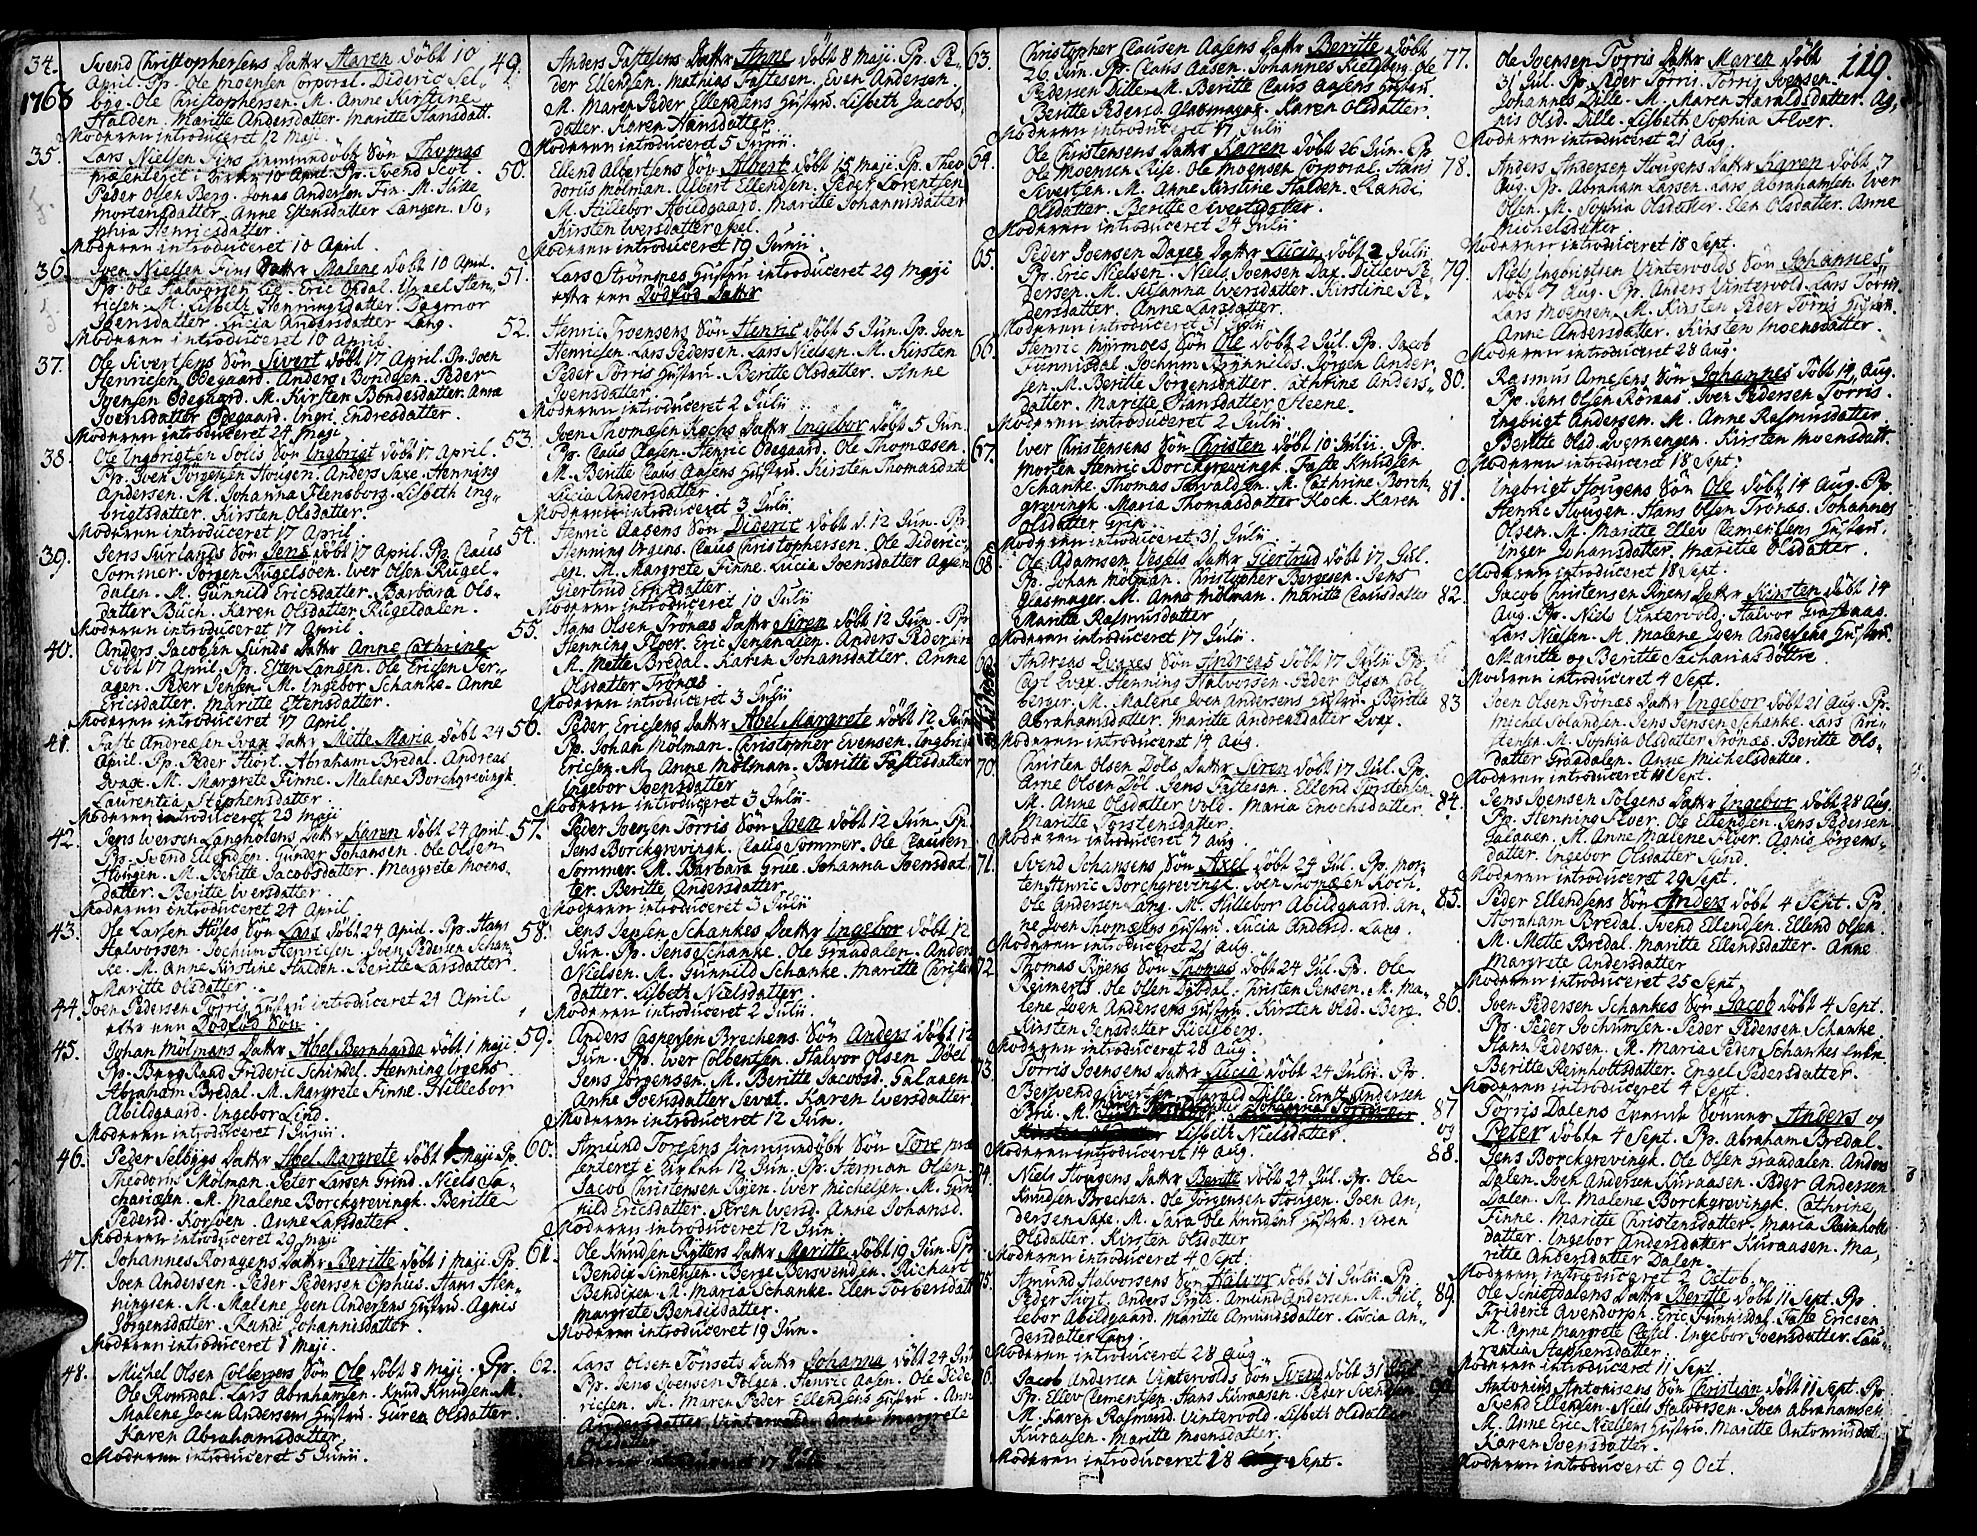 1763
119.
34. Svend Christophersens Datter Maren döbt 10
April. Pp. Ole Moensen Corporal. Dideric Sel-
boe. Ole Christophersen. M. Anne Kirstine
Halden. Maritte Andersdatter. Maritte Hansdatt.
Moderen introduceret 12 Maji
35. Lars Nielsen Fins hiemmedöbt Sön Thomas
præsenteret i Kirken 10 April. Pp. Svend Scot.
Peder Olsen Berg. Jonas Andersen Fin. M.
Mortensdatter. Anne Estensdatter Langen. So-
phia Henricsdatter.
Moderen introduceret 10 April.
36. Joen Nielsen Fins Datter Malene döbt 10 April.
Pp. Ole Halvorsen Lie. Eric Opdal. Israel Hen-
ricsen. M. Lisbeth Henningsdatter. Dagmor
Joensdatter. Lucia Andersdatter Lang.
Moderen introduceret 10 April
37. Ole Sivertsens Sön Sivert döbt 17 April. Pp. Joen
Henricsen Ödegaard. Anders Bondesen. Peder
Joensen Ödegaard. M. Kirsten Bondesdatter. Anna
Joensdatter Ödegaard. Ingri Endresdatter.
Moderen introduceret 24 Maji
38. Ole Ingbrigtsen Solis Sön Ingbrigt döbt 17 April.
Pp. Joen Jörgensen Hougen. Anders Saxe. Henning
Andersen. M. Johanna Flensborg. Lisbeth Ing-
brigtsdatter. Kirsten Olsdatter.
Moderen introduceret 17 April
39. Jens Aurlands Sön Jens döbt 17 April. Pp. Claus
Sommer. Jörgen Rugelsöen. Iver Olsen Rugel-
dalen. M. Gunnild Ericsdatter. Barbara Ols-
datter Buch. Karen Olsdatter Rugeldalen.
Moderen introduceret 17 April.
40. Anders Jacobsen Lunds Datter Anne Cathrine
döbt 17 April. Pp. Esten Langen. Ole Ericsen Fer-
agen. Peder Jensen. M. Ingebor Schanke. Anne
Ericsdatter. Maritte Estensdatter.
Moderen introduceret 17 April
41. Faste Andreæsen Svax Datter Mette Maria döbt 24
April. Pp. Peder Hiort. Abraham Bredal. Andreas
Svax. M. Margrete Finne. Malene Borchgrevingk.
Laurentia Stephensdatter.
Moderen introduceret 23 Maji
42. Jens Iversen Langholens Datter Karen döbt 24 April.
Pp. Svend Ellendsen. Gunder Johansen. Ole Olsen
Hougen. M. Beritte Jacobsdatter. Margrete Moens-
datter. Beritte Iversdatter
Moderen introduceret 24 April
43. Ole Larsen Höses Sön Lars döbt 24 April. Pp. Hans
Halvorsen. Jochum Henricsen. Joen Pedersen Schan-
ke. M. Anne Kirstine Halden. Beritte Larsdatter.
Maritte Olsdatter.
44. Joen Pedersen Törris Hustru introduceret 24 April.
efter een Dödfød Sön
45. Johan Mölmans Datter Abel Bernharda döbt 1 Maji
Pp. Frideric Schindel. Henning Irgens
Abraham Bredal. M. Margrete Finne. Hillebor
Abildgaard. Ingebor Lind.
Moderen introduceret 1 Junii.
46. Peder Selboes Datter Abel Margrete döbt 1 Maji. Pp.
Theodorus Mölman. Peter Larsen Grind. Niels Sa-
chariæsen. M. Malene Borckgrevingk. Beritte
Pedersd. Korsöen. Anne Larsdatter.
Moderen introduceret 29 Maji
47. Johannes Roragens Datter Beritte döbt 1 Maji. Pp.
Joen Andersen. Peder Pedersen Ophus. Hans Hen-
ningsen. M. Malene Joen Andersens Hustru. Agnis
Jörgensdatter. Randi Johannisdatter.
Moderen introduceret 1 Maji.
48. Michel Olsen Colbergs Sön Ole döbt 8 Maji. Pp.
Ole Romdal. Lars Abrahamsen. Knud Knudsen. M.
Malene Joen Andersens Hustru. Guren Olsdatter.
Karen Abrahamsdatter.
Moderen introduceret 5 Junii.
49. Anders Fastesens Datter Anne döbt 8 Maji. Pp. Pe-
der Ellendsen. Mathias Fastesen. Even Andersen.
M. Maren Peder Ellendsens Hustru. Lisbeth Jacobs-
datter. Karen Hansdatter.
Moderen introduceret 5 Junii.
50. Ellend Albertsens Sön Albert döbt 15 Maji. Pp. Theo
dorus Mölman. Albert Ellendsen. Peder Lorentsen
M. Hillebor Abildgaard. Maritte Johannisdatter
Kirsten Iversdatter Spel.
Moderen introduceret 19 Junii
51. Lars Strömmes Hustru introduceret 29 Maji
efter een Dödfød Datter
52. Henric Troensens Sön Henric döbt 5 Jun. Pp. Joen
Henricsen. Lars Pedersen. Lars Nielsen. M. Kirsten
Peder Törris Hustru. Beritte Olsdatter. Anne
Joensdatter.
Moderen introduceret 2 Julii
53. Joen Thomæsen Kochs Datter Ingebor döbt 5 Jun.
Pp. Claus Aasen. Henric Ödegaard. Ole Thomæsen.
M. Beritte Claus Aasens Hustru. Kirsten Thomasdatt
Lucia Andersdatter.
Moderen introduceret 3 Julii
54. Henric Aasens Sön Diderit döbt d. 12 Jun. Pp.
Henning Irgens. Claus Christophersen. Ole Dideric-
sen. M. Margrete Finne. Lucia Joensdatter Agen
Giertrud Ericsdatter.
Moderen introduceret 10 Julii
55. Hans Olsen Trönæs Datter Siren döbt 12 Jun. Pp.
Henning Floer. Eric Jensen. Anders Pedersen
M. Mette Bredal. Karen Johansdatter. Anne
Olsdatter Trönæs.
Moderen introduceret 3 Julii
56. Peder Ericsens Datter Abel Margrete döbt 12 Jun
Pp. Johan Mölman. Christopher Evensen. Ingbrigt
Ericsen. M. Anne Mölman. Beritte Fastesdatter
Ingebor Joensdatter
Moderen introduceret 3 Julii.
57. Peder Joensen Törris Sön Joen döbt 12 Jun. Pp.
Jens Borckgrevingk. Claus Sommer. Ole Clausen
Sommer. M. Barbara Grue. Johanna Joensdat-
ter. Beritte Andersdatter.
Moderen introduceret 3 Julii
58. Jens Jensen Schankes Datter Ingebor döbt 12
Jun. Pp. Jens Schanke. Ole Graadalen. Anders
Nielsen. M. Gunnild Schanke. Maritte Christen
datter. Lisbeth Nielsdatter.
Moderen introduceret 2 Julii.
59. Anders Caspersen Brechens Sön Anders döbt 12
Jun. Pp. Iver Colbentsen. Halvor Olsen Döel
Jens Jörgensen. M. Beritte Jacobsd. Galaaen
Anne Joensdatter Sevat. Karen Iversdatter
Moderen introduceret 12 Jun.
60. Amund Toresens hiemmedöbt Sön Tore præ
senteret i Kirken 12 Jun. Pp. Herman Olsen
Jacob Christensen Ryen. Iver Michelsen. M. Gun
nild Ericsdatter. Seren Iversd. Anne Johansd.
Moderen introduceret 12 Jun.
61. Ole Knudsen Rytters Datter Maritte döbt 19 Jun. Pp.
Bendix Simensen. Berge Bersvendsen. Richart
Bendixen. M. Maria Schanke. Elen Torbersdatt
Margrete Bendixsdatter.
Moderen introduceret 19 Jun.
62. Lars Olsen Tönsets Datter Johanna döbt 24 Jun
Pp. Jens Joensen Tolgen. Henric Aasen. Ole Peder
ricsen. M. Maren Peder Ellendsens Hustru. Ann
Andersdatter Vintervold. Anne Margrete
Olsdatter
Moderen introduceret 17 Julii
63. Christopher Clausen Aasens Datter Beritte döbt
26 Jun. Pp. Claus Aasen. Johannes Kieldberg. Ole
Pedersen Dille. M. Beritte Claus Aasens Hustru.
Beritte Pedersd. Glasmager. Karen Olsdatter.
Moderen introduceret 17 Julii
64. Ole Christensens Datter Karen döbt 26 Jun. Pp.
Ole Moensen Ruse. Ole Moensen Corporal. Hans
Sivertsen. M. Anne Kirstine Halden. Randi
Olsdatter. Beritte Sivertsdatter.
Moderen introduceret 24 Julii
65. Peder Joensen Daxes Datter Lucia döbt 2 Julii
Pp. Eric Nielsen. Niels Joensen Dax. Ditlev Pe-
dersen. M. Susanna Iversdatter. Kirstine Pe-
dersdatter. Anne Larsdatter.
Moderen introduceret 31 Julii
66. Henric Myrmoes Sön Ole döbt 2 Jul. Pp. Jacob
Funnisdal. Jochum Grönnilds. Jörgen Ander-
sen. M. Beritte Jörgensdatter. Cathrine Anders-
datter. Maritte Hansdatter Steene.
Moderen introduceret 2 Julii.
67. Iver Christensens Sön Christen döbt 10 Julii. Pp.
Morten Henric Borckgrevingk. Faste Knudsen
Schanke. Thomas Torvaldsen. M. Cathrine Borch
grevingk. Maria Thomasdatter Kock. Karen
Olsdatter Grin.
Moderen introduceret 31 Julii.
68. Ole Adamsen Vesels Datter Giertrud döbt 17 Jul.
Pp. Johan Mölman. Christopher Bergesen. Jens
Glasmager. M. Anne Mölman. Maritte Clausdatter
Maritte Rasmusdatter
Moderen introduceret 17 Julii.
69. Andreas Svaxes Sön Andreas döbt 17 Julii. Pp.
Carl Svax. Henning Halvorsen. Peder Olsen Col-
berger. M. Malene Joen Andersens Hustru. Beritte
Abrahamsdatter. Maritte Andreasdatter Svax.
Moderen introduceret 14 Aug.
70. Christen Olsen Döls Datter Siren döbt 17 Jul. Pp.
Arne Olsen Döl. Jens Fastesen. Ellend Torstensen
M. Anne Olsdatter Vold. Maria Enochsdatter.
Maritte Torstensdatter.
Moderen introduceret 7 Aug.
71. Svend Johansens Sön Axel döbt 24 Jul. Pp. Mor-
ten Henric Borchgrevingk. Joen Thomæsen Koch.
Ole Andersen Lang. M. Hillebor Abildgaard. An-
ne Joen Thomæsens Hustru. Lucia Andersd. Lang.
Moderen introduceret 21 Aug.
72. Thomas Ryens Sön Thomas döbt 24 Jul. Pp. Ole
Reimerts. Ole Olsen Dybdal. Christen Jensen. M. Ma-
lene Joen Andersens Hustru. Kirsten Olsd. Berg.
Kirsten Jensdatter Kieldberg.
Moderen introduceret 28 Aug.
73. Törris Joensens Datter Lucia döbt 24 Julii. Pp.
Bersvend Sivertsen. Harald Dille. Ernst Andersen
Brue. M. Lisbeth Nielsdatter.
Moderen introduceret 14 Aug.
74. Niels Hougens Datter Beritte döbt 24 Jul. Pp. Ole
Knudsen Brechen. Ole Jörgensen Hougen. Joen An-
dersen Saxe. M. Sara Ole Knudsens Hustru. Siren
Olsdatter. Kirsten Olsdatter
Moderen introduceret 4 Sept.
75. Amund Halvorsens Sön Halvor döbt 31 Julii. Pp.
Peder Hiort. Anders Prytz. Amund Andersen. M. Hil-
lebor Abildgaard. Maritte Amundsdatter. Lucia An-
dersdatter Lang.
Moderen introduceret 28 Aug
76. Jacob Andersen Vintervolds Sön Svend döbt 31 Jul
Pp. Ellev Clementsen. Hans Kuraasen. Peder Svendsen
M. Karen Rasmusd. Vintervold. Lisbeth Olsdatter
Kuraasen. Maritte Moensdatter.
Moderen introduceret 18 Sept.
77. Ole Joensen Törris Datter Maren döbt
31 Jul. Pp. Peder Törris. Törris Joensen.
Johannes Dille. M. Maren Haraldsdatter. Ag-
nis Olsd. Dille. Lisbeth Sophia Floer.
Moderen introduceret 21 Aug.
78. Anders Andersen Hougens Datter Karen döbt 7
Aug. Pp. Abraham Larsen. Lars Abrahamsen. Iver
Olsen. M. Sophia Olsdatter. Elen Olsdatter. Anne
Michelsdatter
Moderen introduceret 18 Sept.
79. Niels Ingbrigtsen Vintervolds Sön Johannes
döbt 7 Aug. Pp. Anders Vintervold. Lars Törris.
Lars Moensen. M. Kirsten Peder Törris Hustru.
Anne Andersdatter. Kirsten Moensdatter.
Moderen introduceret 28 Aug.
80. Rasmus Arnesens Sön Johannes döbt 14 Aug.
Pp. Jens Olsen Rönæs. Joen Pedersen Törris.
Ingbrigt Andersen. M. Anne Rasmusdatter
Beritte Olsd. Evernengen. Kirsten Moensdatt.
Moderen introduceret 18 Sept.
81. Ingbrigt Hougens Sön Ole döbt 14 Aug. Pp.
Henric Hougen. Hans Olsen Trönæs. Johannes
Olsen. M. Maritte Ellev Clementsens Hustru.
Inger Johansdatter. Maritte Olsdatter.
Moderen introduceret 18 Sept.
82. Jacob Christensen Ryens Datter Kirsten döbt 14
Aug. Pp. Niels Vintervold. Halvor Graftaas.
Lars Nielsen. M. Malene Joen Andersens Hustru.
Maritte og Beritte Sachariasdöttre.
Moderen introduceret 4 Sept.
83. Joen Olsen Trönæs Datter Ingebor döbt 21 Aug. Pp.
Michel Solandsen. Jens Jensen Schanke. Lars Chri-
stensen. M. Sophia Olsdatter Trönæs. Beritte Ols-
datter Graadalen. Anne Michelsdatter.
Moderen introduceret 11 Sept.
84. Jens Joensen Tolgens Datter Ingebor döbt 28 Aug.
Pp. Henning Floer. Ole Ellendsen. Jens Pedersen
Galaaen. M. Anne Malene Floer. Agnis Jörgens-
datter. Ingebor Olsdatter Sund.
Moderen introduceret 29 Sept.
85. Peder Ellendsens Sön Anders döbt 4 Sept. Pp.
Abraham Bredal. Svend Ellendsen. Ellend Olsen.
M. Mette Bredal. Maritte Ellendsdatter. Anne
Margrete Andersdatter
Moderen introduceret 25 Sept.
86. Joen Pedersen Schankes Sön Jacob döbt 4 Sept.
Pp. Peder Jochumsen. Peder Pedersen Schanke
Hans Pedersen. M. Maria Peder Schankes Enke.
Beritte Reinholtsdatter. Engel Pedersdatter.
Moderen introduceret 4 Sept.
87 og 88. Törris Dalens Tvende Sönner Anders og
Peter döbte 4 Sept. Pp. Abraham Bredal.
Jens Borckgrevingk. Ole Olsen Graadalen. Anders
Dalen. Joen Andersen Kuraasen. Peder Andersen
Dalen. M. Malene Borckgrevingk. Cathrine
Finne. Maritte Christensdatter. Maria Reinholts
datter. Ingebor Andersdatter Kuraasen. Ma-
ritte Andersdatter Dalen.
Moderen introduceret 2 Octob.
89. Ole Schistdalens Datter Beritte döbt 11 Sept. Pp.
Frideric Avendorph. Eric Funnisdal. Faste Ericsen
M. Anne Margrete Castel. Ingebor Joensdatter. Lau-
rentia Stephensdatter.
Moderen introduceret 11 Sept.
90. Antonius Antonisens Sön Christian döbt 11 Sept. Pp.
Svend Ellendsen. Niels Halvorsen. Joen Abrahamsen
M. Anne Eric Nielsens Hustru. Maritte Antonisdat-
Karen Joensdatter.
Moderen introduceret 9 Oct.